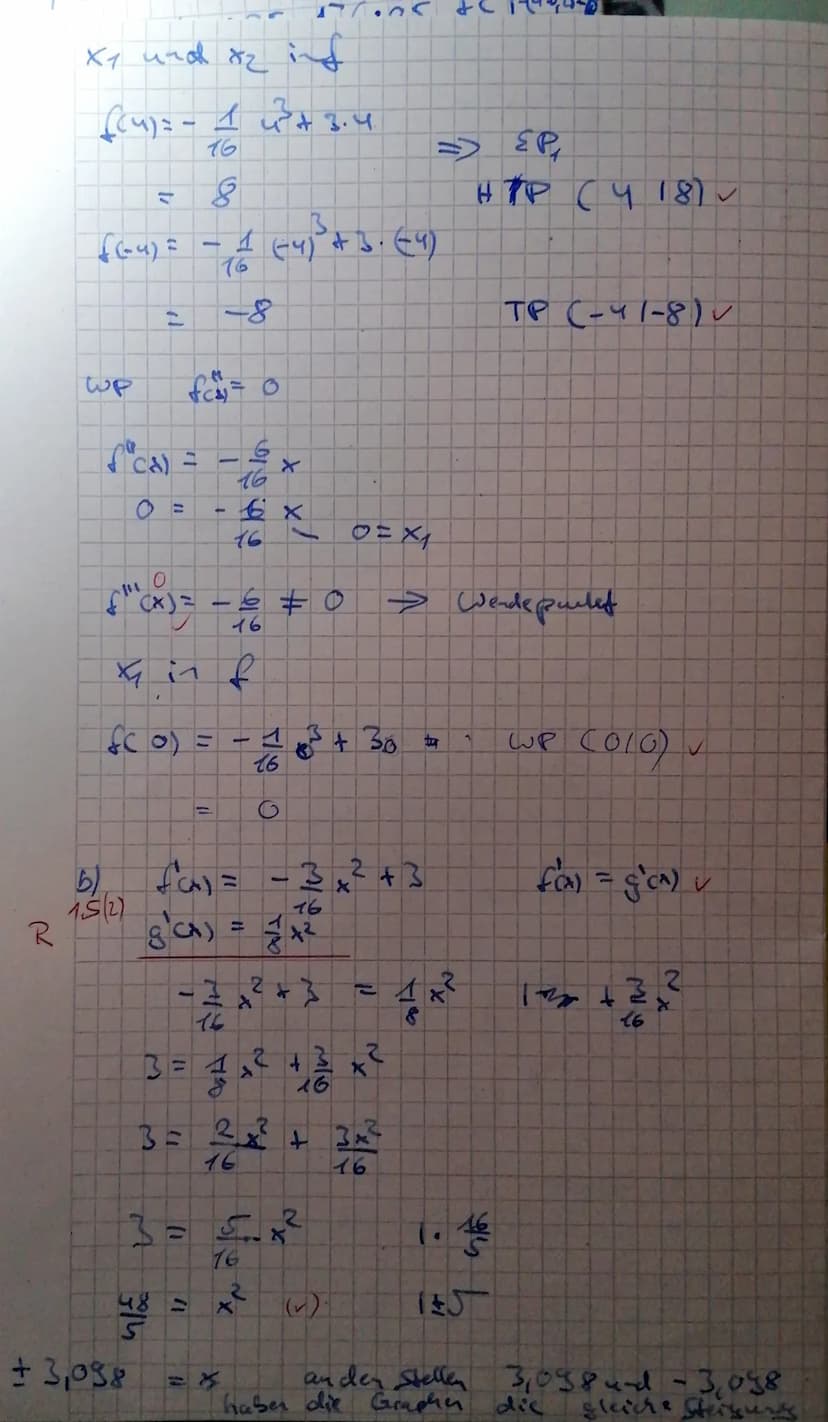 x₁ und x₂ in f
f(4) = - 1/16 4³ + 3·4 ⇒ EP₁
= 8 HP (4|8) ✓
f(-4) = - 1/16 (-4)³ + 3·(-4)
= -8 TP (-4|-8) ✓
WP f''(x) = 0
f''(x) = - 6/16 x
0 = - 6/16 x 0 = x₁
0
f'''(x) = - 6/16 ≠ 0 → Wendepunkt
✓
x₁ in f
f(0) = - 1/16 0³ + 3·0 = WP (0|0) ✓
= 0
b) f'(x) = - 3/16 x² + 3 f'(x) = g'(x) ✓
R 1,5(2) g'(x) = 1/8 x²
- 3/16 x² + 3 = 1/8 x² | + 3/16 x²
3 = 1/8 x² + 3/16 x²
3 = 2x²/16 + 3x²/16
3 = 5/16 · x² | · 16/5
48/5 = x² (✓) | ±√
± 3,098 = x an den Stellen 3,098 und - 3,098
haben die Graphen die gleiche Steigung